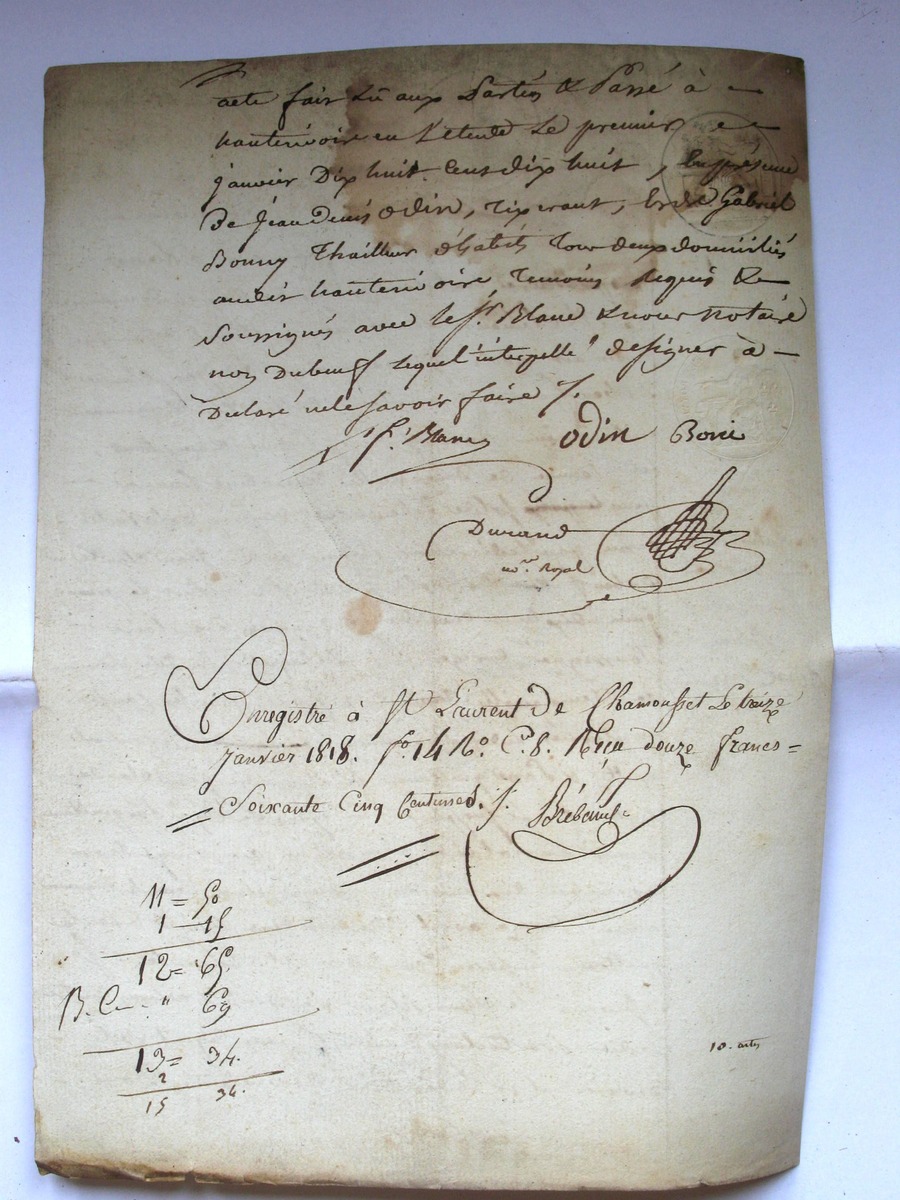 acte fait Lû aux Parties & Passé à
hauterivoire en L'etude Le premier
janvier Dix huit Cent dix huit, En présence
De Jean Denis Odin, tixerant, & de Gabriel
Bonny Thailleur d'habits Tous deux domiciliés
audit hauterivoire Temoins requis &
Soussignés avec le Sr. Blanc & nous notaire
non Duboeuf lequel interpellé de signer à
Declaré ne le savoir faire /.
Sr. Blanc odin Bonié
Durand
nore. Royal
Enregistré à St Laurent De Chamousset Le treize
Janvier 1818. fo. 14 Ro. C. 8. Reçu douze francs =
Soixante Cinq Centimes. /.
11 = 50
1 — 15
12 = 65.
" 69
13 = 34.
2
15 34.
10. actes